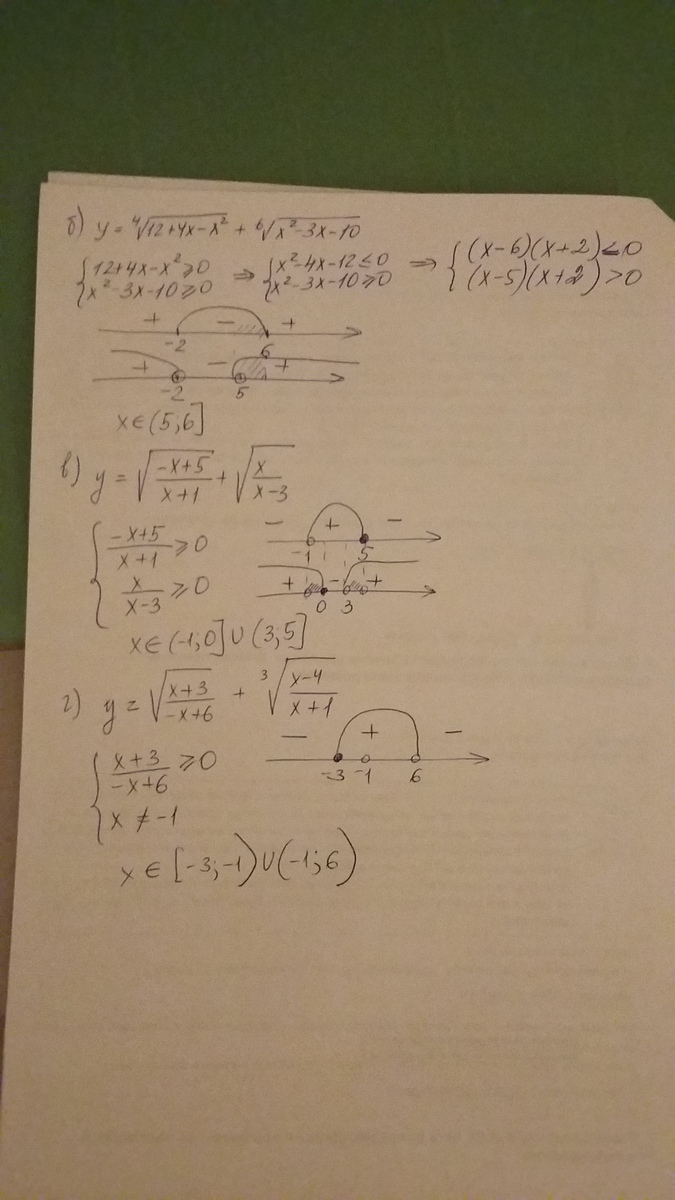 б) y = ⁴√(12+4x-x²) + ⁶√(x²-3x-10)
{12+4x-x²⩾0 ⇒ {x²-4x-12≤0 ⇒ {(x-6)(x+2)≤0
{x²-3x-10⩾0 {x²-3x-10⩾0 {(x-5)(x+2)>0
+ - +
-2 6
+ - +
-2 5
x∈(5;6]
в) y = √((-x+5)/(x+1)) + √(x/(x-3))
{(-x+5)/(x+1) ⩾0
- + -
-1 5
{x/(x-3) ⩾0
+ - +
0 3
x∈(-1;0]∪(3;5]
г) y = √((x+3)/(-x+6)) + ³√((x-4)/(x+1))
{(x+3)/(-x+6) ⩾0
- + -
-3 -1 6
{x ≠ -1
x∈[-3;-1)∪(-1;6)